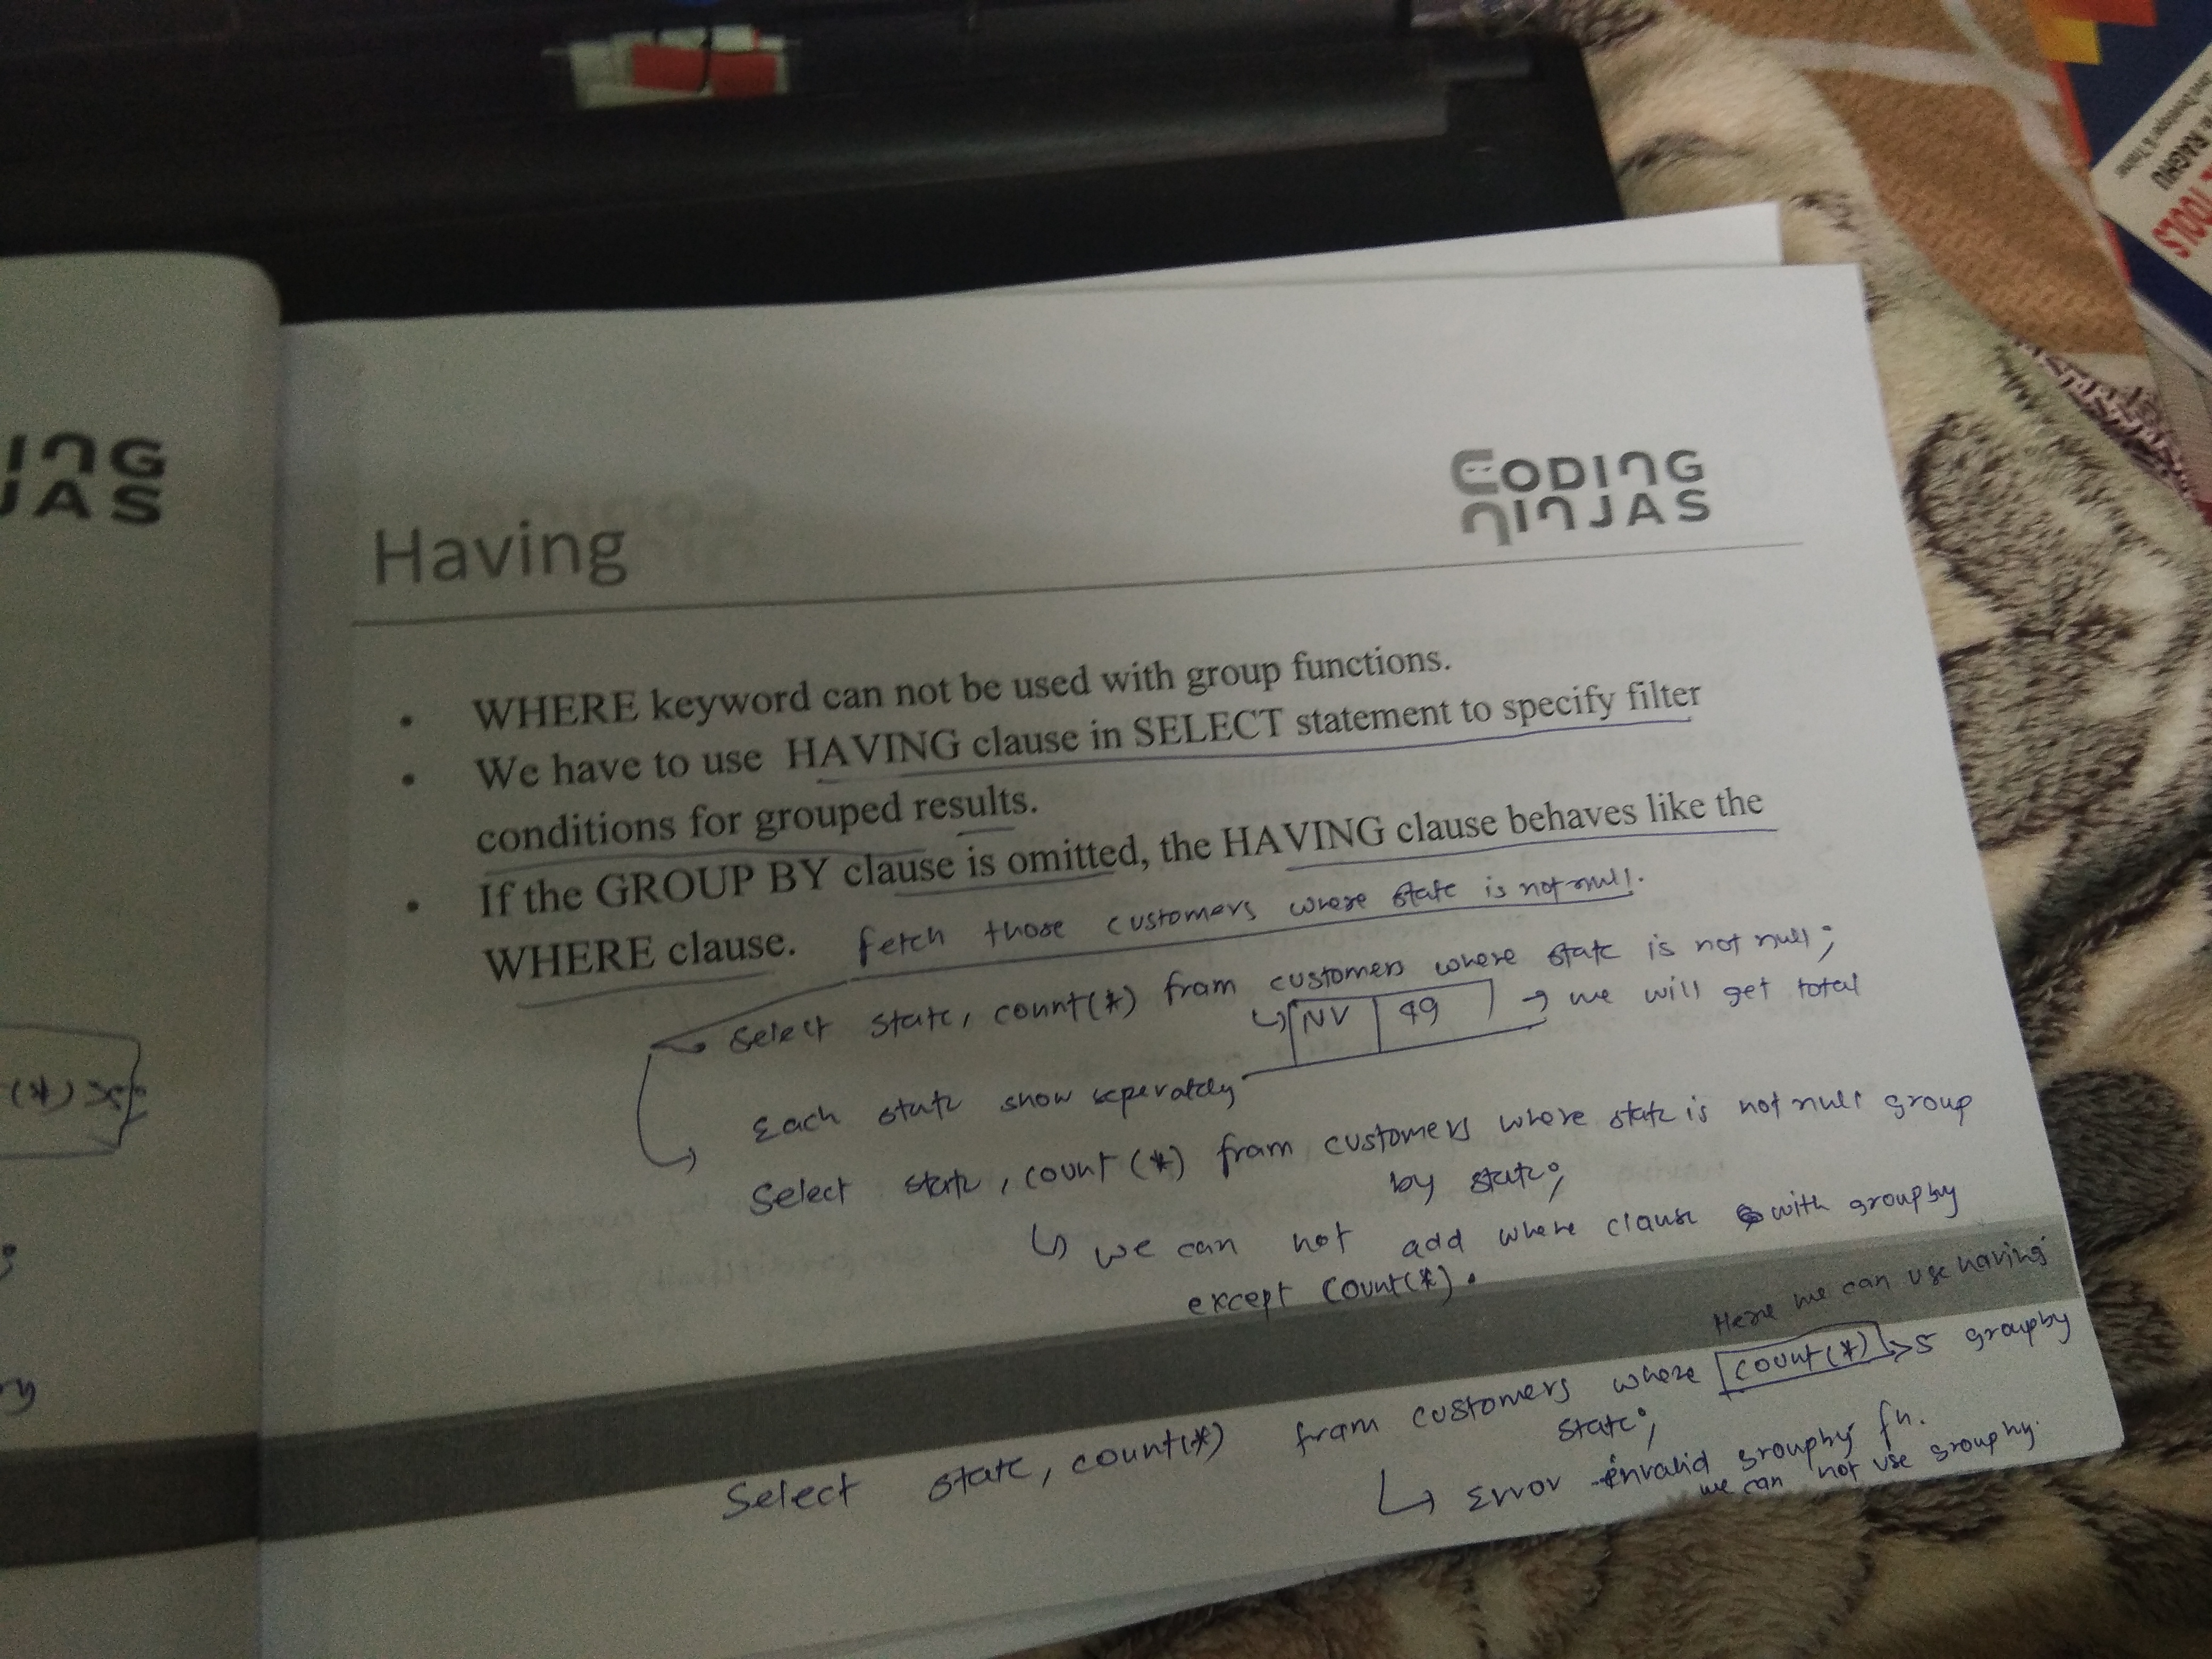 ING
JAS
CODING
NINJAS
Having
• WHERE keyword can not be used with group functions.
• We have to use HAVING clause in SELECT statement to specify filter
conditions for grouped results.
• If the GROUP BY clause is omitted, the HAVING clause behaves like the
WHERE clause. fetch those customers where state is not null.
Select state, count(*) from customers where state is not null;
NV 49 we will get total
Each state show seperately
Select state, count(*) from customers where state is not null group
by state;
we can not add where clause with groupby
except count(*).
Here we can use having
Select state, count(*) from customers where count(*) >5 groupby
state;
Error invalid groupby fn.
we can not use groupby.
(*)
RAGHU
TOOLS